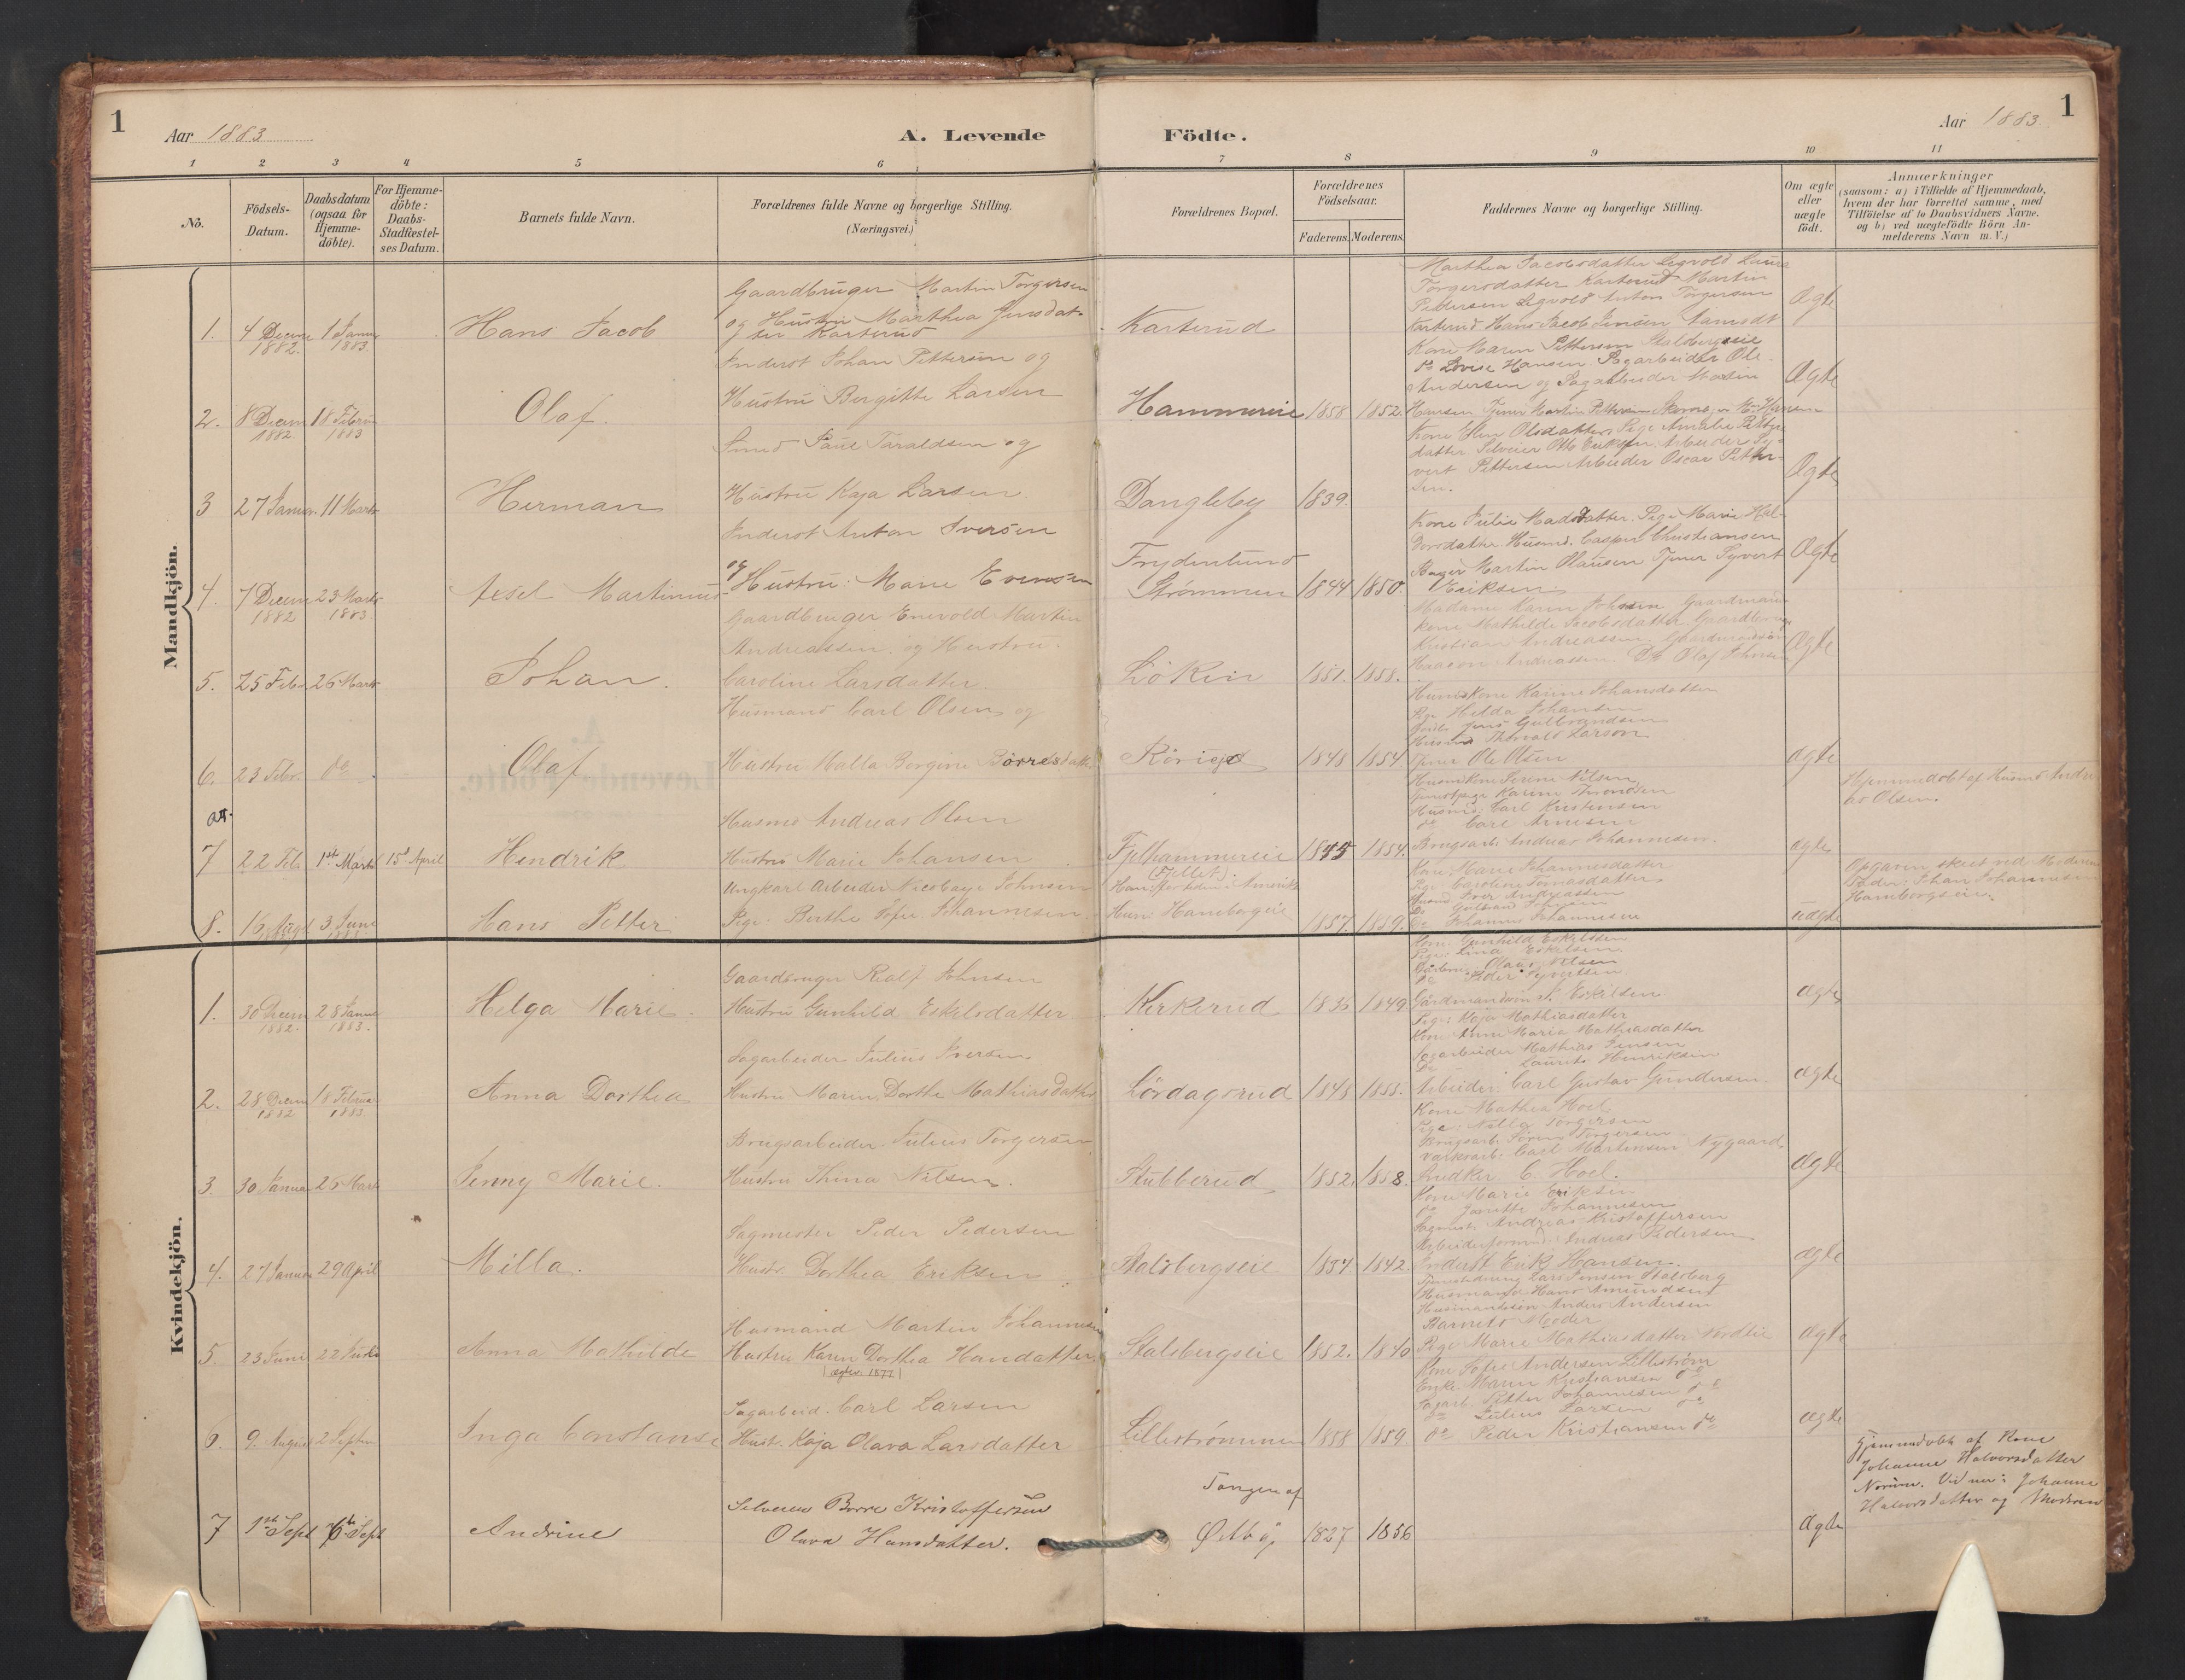 1
Aar 1883
A. Levende
Födte.
Aar 1883
1
1 2 3 4 5 6 7 8 9 10 11
No.
Födsels-
Datum.
Daabsdatum
(ogsaa for
Hjemme-
döbte).
For Hjemme-
döbte:
Daabs-
Stadfæstel-
ses Datum.
Barnets fulde Navn.
Forældrenes fulde Navne og borgerlige Stilling.
(Næringsvei.)
Forældrenes Bopæl.
Forældrenes
Födselsaar.
Faderens. Moderens.
Faddernes Navne og borgerlige Stilling.
Om ægte
eller
uægte
födt.
Anmærkninger
(saasom: a) i Tilfælde af Hjemmedaab,
hvem der har forrettet samme, med
Tilföielse af to Daabsvidners Navne.
og b) ved uægtefödte Börn An-
melderens Navn m. V.)
Mandkjön.
1. 4 Decem 1882. 1 Janu 1883.
Hans Jacob
Gaardbruger Martin Torgersen
og Hustru Marthea Jensdat-
ter Karterud
Karterud
Marthea Jacobsdatter Legvold Laura
Torgersdatter Karterud Martin
Pedersen Legvold Anton Torgersen
Karterud Hans Jacob Jensen
Ægte
2. 8 Decem 1882 18 Februa 1883
Olaf.
Inderst Johan Pettersen og
Hustru Bergitte Larsen
Hammereie 1858 1852.
Kone Maren Pettersen Stalsbergseie
do Lovise Hansen Sagarbeider Ole
Andersen og Sagarbeider Martin
Hansen
Ægte
3 27 Januar. 11 Marts
Herman
Smed Paul Taraldsen og
Hustru Kaja Larsen.
Dangleby 1839.
Kone Elen Olsdatter Pige Amalie Petters
datter Selveier Otto Eriksen Arbeider Sy-
vert Pettersen Arbeider Oscar Petter-
sen.
Ægte
4. 7 Decem 1882 23 Marts 1883.
Axsel Martinius
Inderst Anton Iversen
og Hustru: Marie Evensen
Frydenlund
Strømmen 1844 1850.
Kone Julie Madsdatter. Pige Marie Hal-
vorsdatter Husmd. Casper Christiansen
Bager Martin Olausen Tjener Syvert
Eriksen
Ægte
5. 25 Febr 26 Marts
Johan.
Gaardbruger Enevold Martin
Andreassen. og Hustru.
Caroline Larsdatter.
Løken 1851. 1858.
Madame Karen Johnsen Gaardmand
kone Mathilde Jacobsdatter Gaardbrug
Kristian Andreassen. Gaardmandsøn
Haagon Andreassen. Do Olaf Johnsen
Ægte
6. 23 Febr. do
Olaf
Husmand Carl Olsen og
Hustru Malla Borgine Børresdatt.
1848 1854
Husmkone Karine Johansdatter
Pige Hilda Johansen
Jens Gulbrandsen
Husmd Thorvald Larson
Tjener Ole Olsen
ægte
7 22 Feb. 1st Marts 15d April
Hendrik
Husmd Andreas Olsen
Hustru Marie Johansen
Fjelhammereie
(Fjellet).
1845 1854.
Husmkone Serene Nilsen
Tjenestpige Karen Thronsen
Husmd: Carl Kristensen
do Carl Arnesen
Brugsarb. Andreas Johannesen.
ægte
Hjemmedøbt af Husmd Andre-
as Olsen.
8. 16 Augt 3 Juni
Hans Petter
Ungkarl Arbeider Nicolaye Johnsen
Pige: Berthe Sofie Johannesen
Han: for tiden i Amerika
Hun: Haneborgeie 1857. 1859.
Kone: Marie Johannesdatter
Pige Caroline Tomasdatter
Husmd Iver Andreassen
do Johannes Johannesen
uægte
Opgaven skeet ved Moderen
Fader: Johan Johannesen
Haneborgseie.
Kvindekjön.
1. 30 Decem 1882. 28 Janu 1883.
Helga Marie.
Gaardbruger Rolf Johnsen
Hustru Gunhild Eskilsdatter
Kirkerud 1836 1849
Kone: Gunhild Eskildsen
Pige: Lina Eskilsen
Olaus Nilsen
Do Peder Syvertsen
Gårdmandsøn J. Eskilsen
ægte
2. 28 Decem 1882 18 Februa 1883.
Anna Dorthea
Sagarbeider Julius Iversen
Hustru Maren Dorthe Mathiasdatter
Lørdagsrud 1848 1855.
Pige: Maja Mathiasdatter
Kone Anne Maria Mathiasdatter
Sagarbeider Mathias Jensen
Do Laurits Henriksen
Arbeider: Carl Gustav Gundersen.
ægte
3. 30 Janua 26 Marts
Jenny Marie.
Brugsarbeider Julius Torgersen
Hustru Thina Nilsen.
Stubberud 1852. 1858.
Kone Mathea Hoel
Pige: Nella Torgersen
Brugsarb. Søren Torgersen
Værksarb: Carl Martinsen Nygaard
Snedker C. Hoel.
ægte
4. 27 Januar 29 April
Milla.
Sagmester Peder Pedersen
Hustr. Dorthea Eriksen
Stalsbergseie 1834 1842.
Kone Marie Eriksen
do Janette Johannesen
Sagmest. Andreas Kristoffersen
Arbeiderformd: Andreas Pedersen
Inderst Erik Hansen.
ægte
5. 23 Juni 22
Anna Mathilde
Husmand Martin Johannesen
Hustru Karen Dorthea Hansdatter.
(ægtev. 1877)
Stalsbergseie 1852. 1840
Lars Jensen Stalsberg
Husmand Hans Amundsen
Husmandssøn Anders Andersen
Barnets Moder
Pige Marie Mathiasdatter Nordlie
ægte
6. 9. August 2 Septr.
Inga Constanse
Sagarbeid. Carl Larsen
Hust. Kaja Olava Larsdatter
Lillestrømmen 1858 1859
Kone Sofie Andersen Lillestrøm
Enke Maren Kristiansen do
Sagarb. Petter Johannesen do
do Julius Larsen do
do Peder Kristiansen do
ægte
7 1st Sept 6te Sept
Andrine
Selveier Borre Kristoffersen
Olava Hansdatter.
Tangen af
Østby 1827 1856
ægte
Hjemmedøbt af Kone
Johanne Halvorsdatter
Norum. Vidner: Johanne
Halvorsdatter og Moderen
A.
Levende Födte.